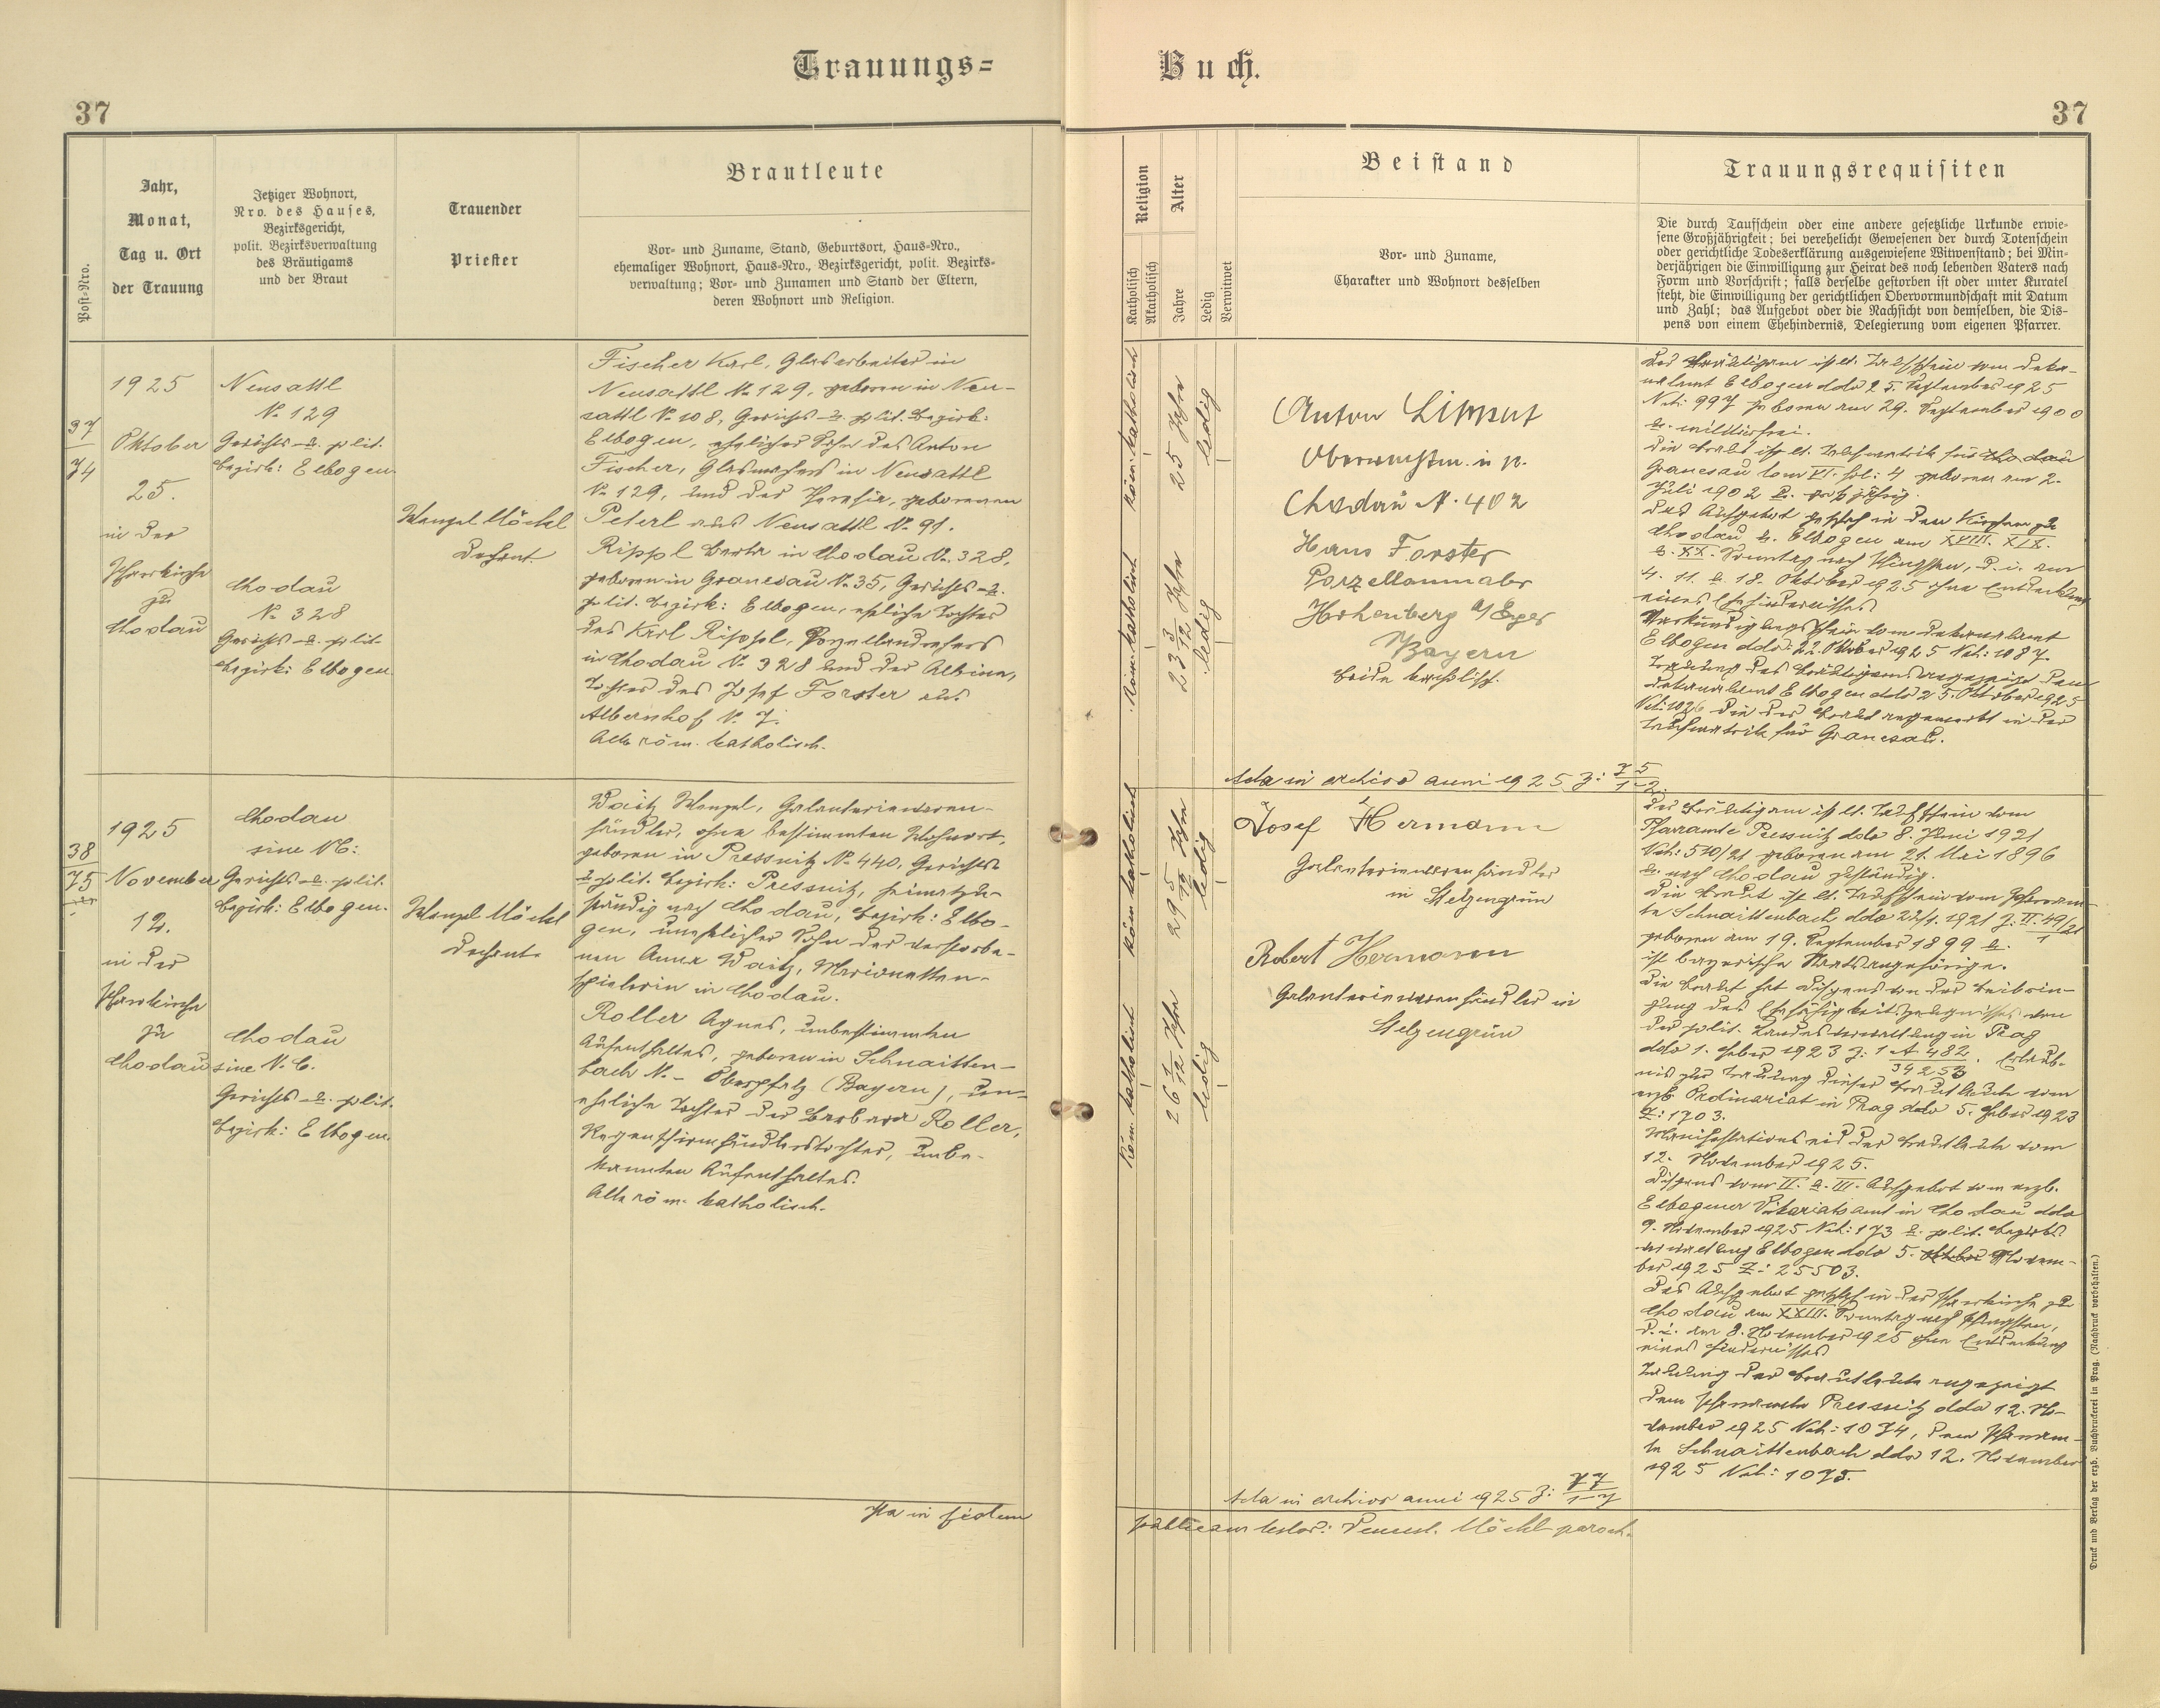 Trauungs=
Buch.
37
37
Post-Nro.
Jahr,
Monat,
Tag u. Ort
der Trauung
Jetziger Wohnort,
Nro. des Hauses,
Bezirksgericht,
polit. Bezirksverwaltung
des Bräutigams
und der Braut
Trauender
Priester
Brautleute
Vor- und Zuname, Stand, Geburtsort, Haus-Nro.,
ehemaliger Wohnort, Haus-Nro., Bezirksgericht, polit. Bezirks-
verwaltung; Vor- und Zunamen und Stand der Eltern,
deren Wohnort und Religion.
Religion
Katholisch
Akatholisch
Alter
Jahre
Ledig
Verwitwet
Beistand
Vor- und Zuname,
Charakter und Wohnort desselben
Trauungsrequisiten
Die durch Taufschein oder eine andere gesetzliche Urkunde erwie-
sene Großjährigkeit; bei verehelicht Gewesenen der durch Totenschein
oder gerichtliche Todeserklärung ausgewiesene Witwenstand; bei Min-
derjährigen die Einwilligung zur Heirat des noch lebenden Vaters nach
Form und Vorschrift; falls derselbe gestorben ist oder unter Kuratel
steht, die Einwilligung der gerichtlichen Obervormundschaft mit Datum
und Zahl; das Aufgebot oder die Nachsicht von demselben, die Dis-
pens von einem Ehehindernis, Delegierung vom eigenen Pfarrer.
37
74
1925
Oktober
25.
in der
Pfarrkirche
zu
Chodau
Neusattl
No 129
Gerichts- u. polit.
Bezirk: Elbogen.
Chodau
No 328
Gerichts- u. polit.
Bezirk: Elbogen.
Wenzel Möckl
Dechant.
Fischer Karl, Glasarbeiter in
Neusattl No 129, geboren in Neu-
sattl No 108, Gerichts- u. polit. Bezirk:
Elbogen, ehelicher Sohn des Anton
Fischer, Glasmachers in Neusattl
No 129, und der Theresia, geborenen
Peterl aus Neusattl No 91.
Rippl Berta in Chodau No 328,
geboren in Granesau No 35, Gerichts- u.
polit. Bezirk: Elbogen, eheliche Tochter
des Karl Rippl, Porzellandrehers
in Chodau No 328 und der Albina,
Tochter des Josef Forster aus
Albernhof No 7.
Alle röm. katholisch.
röm. katholisch
25 Jahre
ledig
Röm. katholisch
23 3/12 Jahre
ledig
Anton Lippert
Chodau No 402
Hans Forster
Porzellanmaler
Hohenberg a/Eger
Bayern
beide katholisch.
Der Bräutigam ist lt. Taufschein vom Deka-
nalamt Elbogen ddo 25. September 1925
Nch: 997 geboren am 29. September 1900
u. militärfrei.
Die Braut ist lt. Taufmatrik für Chodau
Granesau tom VI. fol: 4 geboren am 2.
Juli 1902 u. großjährig.
Das Aufgebot geschah in den Kirchen zu
Chodau u. Elbogen am XVIII. XIX.
u. XX. Sonntag nach Pfingsten, d. i. am
4. 11. u. 18. Oktober 1925 ohne Entdeckung
eines Ehehindernisses
Verkündigungsschein vom Dekanalamt
Elbogen ddo: 22. Oktober 1925 Nch: 1087.
Trauung des Bräutigams angezeigt dem
Dekanalamt Elbogen ddo 25. Oktober 1925
Nch: 1026 die der Braut angemerkt in der
Taufmatrik für Granesau.
Acta in archivo anni 1925 z: 75/1-2.
38
75
1925
November
12.
in der
Pfarrkirche
zu
Chodau
Chodau
sine Nc:
Gerichts- u. polit.
Bezirk: Elbogen.
Chodau
sine N. C.
Gerichts- u. polit.
Bezirk: Elbogen.
Wenzel Möckl
Dechant.
Waitz Wenzel, Galanteriewaren-
händler, ohne bestimmten Wohnort,
geboren in Pressnitz No 440, Gerichts-
u. polit. Bezirk: Pressnitz, heimatzu-
ständig nach Chodau, Bezirk: Elbo-
gen, unehelicher Sohn der verstorbe-
nen Anna Waitz, Marionetten-
spielerin in Chodau.
Roller Agnes, unbestimmten
Aufenthaltes, geboren in Schnaitten-
bach N. - Oberpfalz (Bayern), un-
eheliche Tochter der Barbara Roller,
Regenschirmhändlerstochter, unbe-
kannten Aufenthaltes.
Alle röm. katholisch.
Röm. katholisch
29 5/12 Jahre
ledig
Röm. katholisch
26 1/12 Jahre
ledig
Josef Hermann
Galanteriewarenhändler
in Stelzengrün
Robert Hermann
Galanteriewarenhändler in
Stelzengrün
Der Bräutigam ist lt. Taufschein vom
Pfarramte Pressnitz ddo 8. Juni 1921
Nch: 510/21 geboren am 21. Mai 1896
u. nach Chodau zuständig.
Die Braut ist lt. Taufschein vom Pfarram-
te Schnaittenbach ddo 22/1. 1921 z: II. 49/21
geboren am 19. September 1899 u.
ist bayerische Staatsangehörige.
Die Braut hat Dispens von der Beibrin-
gung des Ehefähigkeitszeugnisses von
der polit. Landesverwaltung in Prag
ddo 1. Feber 1923 z: 1 A 482/34253. Erlaub-
nis zur Trauung dieser Brautleute vom
erzb. Ordinariat in Prag ddo 5. Feber 1923
Z: 1703.
Manifestationseid der Brautleute vom
12. November 1925.
Dispens vom II. u. III. Aufgebot vom erzb.
Elbogener Vikariatsamt in Chodau ddo
9. November 1925 Nch: 173 u. polit. Bezirks-
verwaltung Elbogen ddo 5. Oktober Novem-
ber 1925 Z: 25503.
Das Aufgebot geschah in der Pfarrkirche zu
Chodau am XXIII. Sonntag nach Pfingsten,
d. i. am 8. November 1925 ohne Entdeckung
eines Hindernisses
Trauung der Brautleute angezeigt
dem Pfarramte Pressnitz ddo 12. No-
vember 1925 Nch: 1074, dem Pfarram-
te Schnaittenbach ddo 12. November
1925 Nch: 1075.
Acta in archivo anni 1925 z: 77/1-7
Ita in fidem
publicam testor: Wenzel. Möckl paroch.
Druck und Verlag der erzb. Buchdruckerei in Prag. (Nachdruck vorbehalten.)